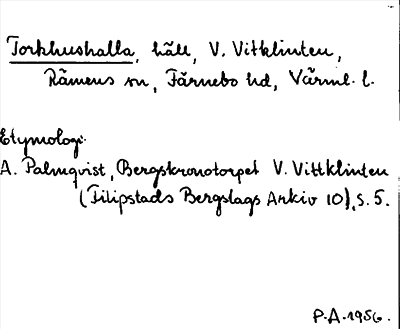 Torkhushalla, häll, V. Vitklinten,
Rämens sn, Färnebo hd, Värml. l.
Etymologi:
A. Palmqvist, Bergskronotorpet V. Vittklinten
(Filipstads Bergslags Arkiv 10), s. 5.
P.A. 1956.